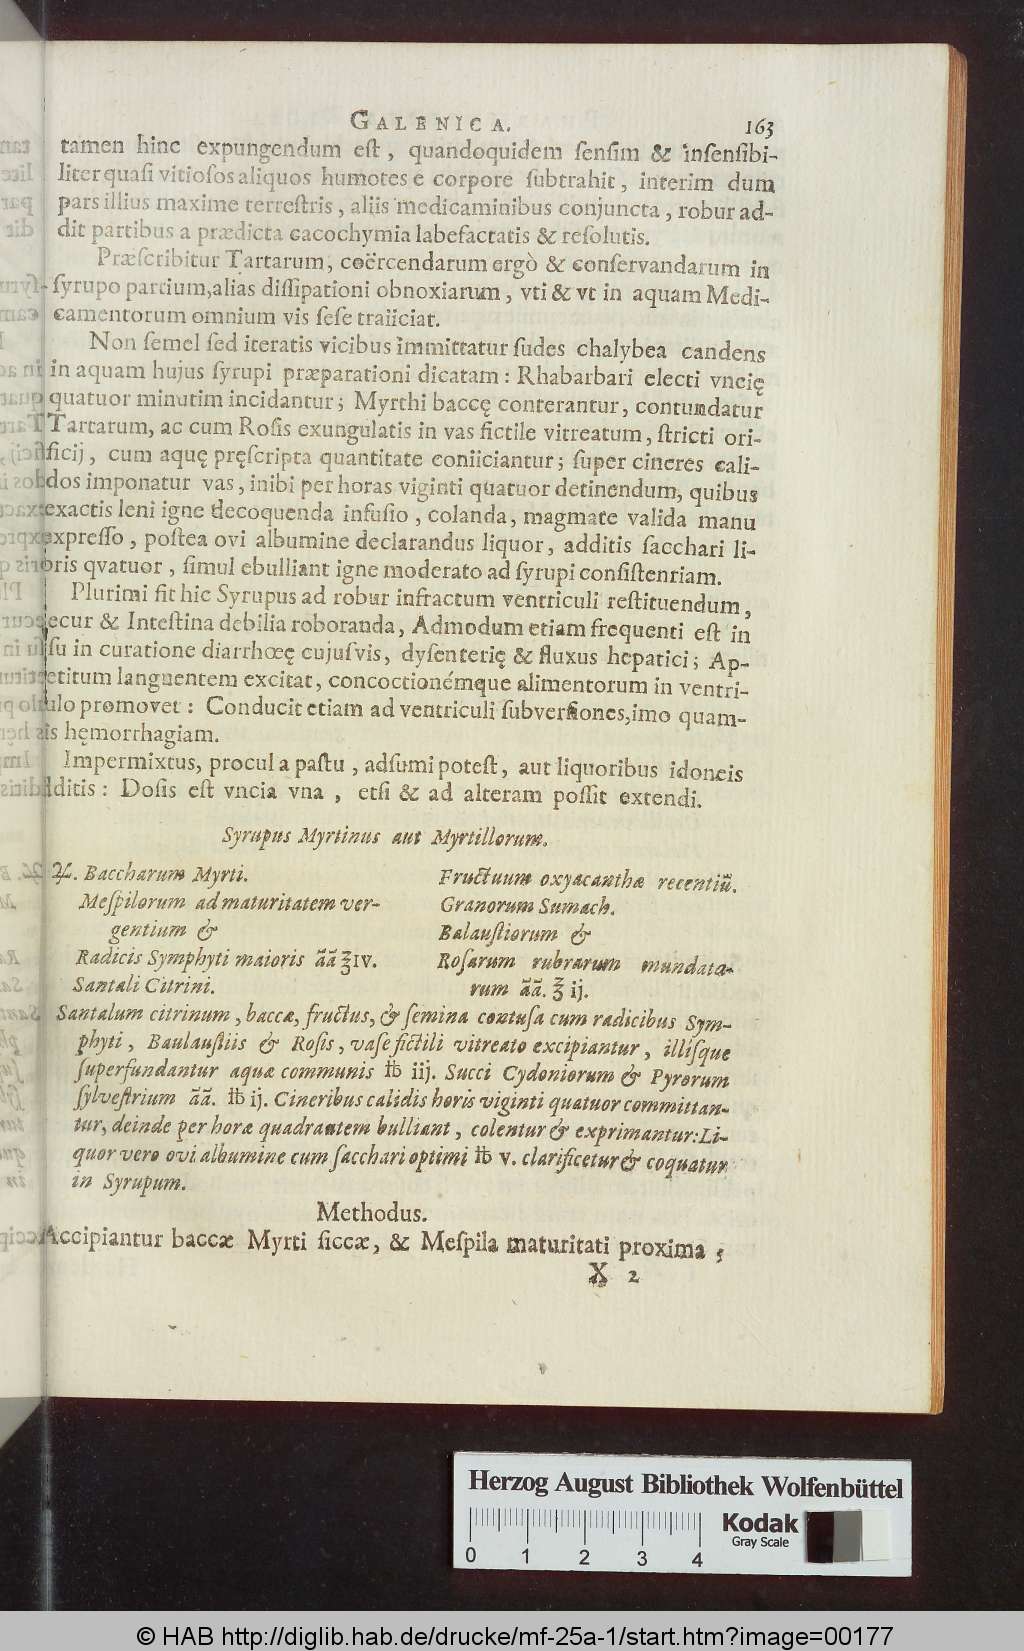 GALENICA. 163
tamen hinc expungendum eſt, quandoquidem ſenſim & inſenſibi-
liter quaſi vitioſos aliquos humotes e corpore ſubtrahit, interim dum
pars illius maxime terreſtris, aliis medicaminibus conjuncta, robur ad-
dit partibus a prædicta cacochymia labefactatis & reſolutis.
Præſcribitur Tartarum, coërcendarum ergò & conſervandarum in
ſyrupo partium, alias diſſipationi obnoxiarum, vti & vt in aquam Medi-
camentorum omnium vis ſeſe traiiciat.
Non ſemel ſed iteratis vicibus immittatur ſudes chalybea candens
in aquam hujus ſyrupi præparationi dicatam: Rhabarbari electi vncię
quatuor minutim incidantur; Myrthi baccę conterantur, contundatur
Tartarum, ac cum Roſis exungulatis in vas fictile vitreatum, ſtricti ori-
ficij, cum aquę pręſcripta quantitate coniiciantur; ſuper cineres cali-
dos imponatur vas, inibi per horas viginti quatuor detinendum, quibus
exactis leni igne decoquenda infuſio, colanda, magmate valida manu
expreſſo, poſtea ovi albumine declarandus liquor, additis ſacchari li-
bris qvatuor, ſimul ebulliant igne moderato ad ſyrupi conſiſtenriam.
Plurimi fit hic Syrupus ad robur infractum ventriculi reſtituendum,
jecur & Inteſtina debilia roboranda, Admodum etiam frequenti eſt in
uſu in curatione diarrhœę cujuſvis, dyſenterię & fluxus hepatici; Ap-
petitum languentem excitat, concoctionémque alimentorum in ventri-
culo promovet: Conducit etiam ad ventriculi ſubverſiones, imo quam-
vis hęmorrhagiam.
Impermixtus, procul a paſtu, adſumi poteſt, aut liquoribus idoneis
additis: Doſis eſt vncia vna, etſi & ad alteram poſſit extendi.
Syrupus Myrtinus aut Myrtillorum.
℞. Baccharum Myrti.
Meſpilorum ad maturitatem ver-
gentium &
Radicis Symphyti maioris ãã ℥ IV.
Santali Citrini.
Fructuum oxyacanthæ recentiũ.
Granorum Sumach.
Balauſtiorum &
Roſarum rubrarum mundata-
rum ãã. ℥ ij.
Santalum citrinum, baccæ, fructus, & ſemina contuſa cum radicibus Sym-
phyti, Baulauſtiis & Roſis, vaſe fictili vitreato excipiantur, illiſque
ſuperfundantur aquæ communis ℔ iij. Succi Cydoniorum & Pyrorum
ſylveſtrium ãã. ℔ ij. Cineribus calidis horis viginti quatuor committan-
tur, deinde per horæ quadrantem bulliant, colentur & exprimantur: Li-
quor vero ovi albumine cum ſacchari optimi ℔ v. clarificetur & coquatur
in Syrupum.
Methodus.
Accipiantur baccæ Myrti ſiccæ, & Meſpila maturitati proxima;
X 2
Herzog August Bibliothek Wolfenbüttel
Kodak
Gray Scale
0 1 2 3 4
© HAB http://diglib.hab.de/drucke/mf-25a-1/start.htm?image=00177